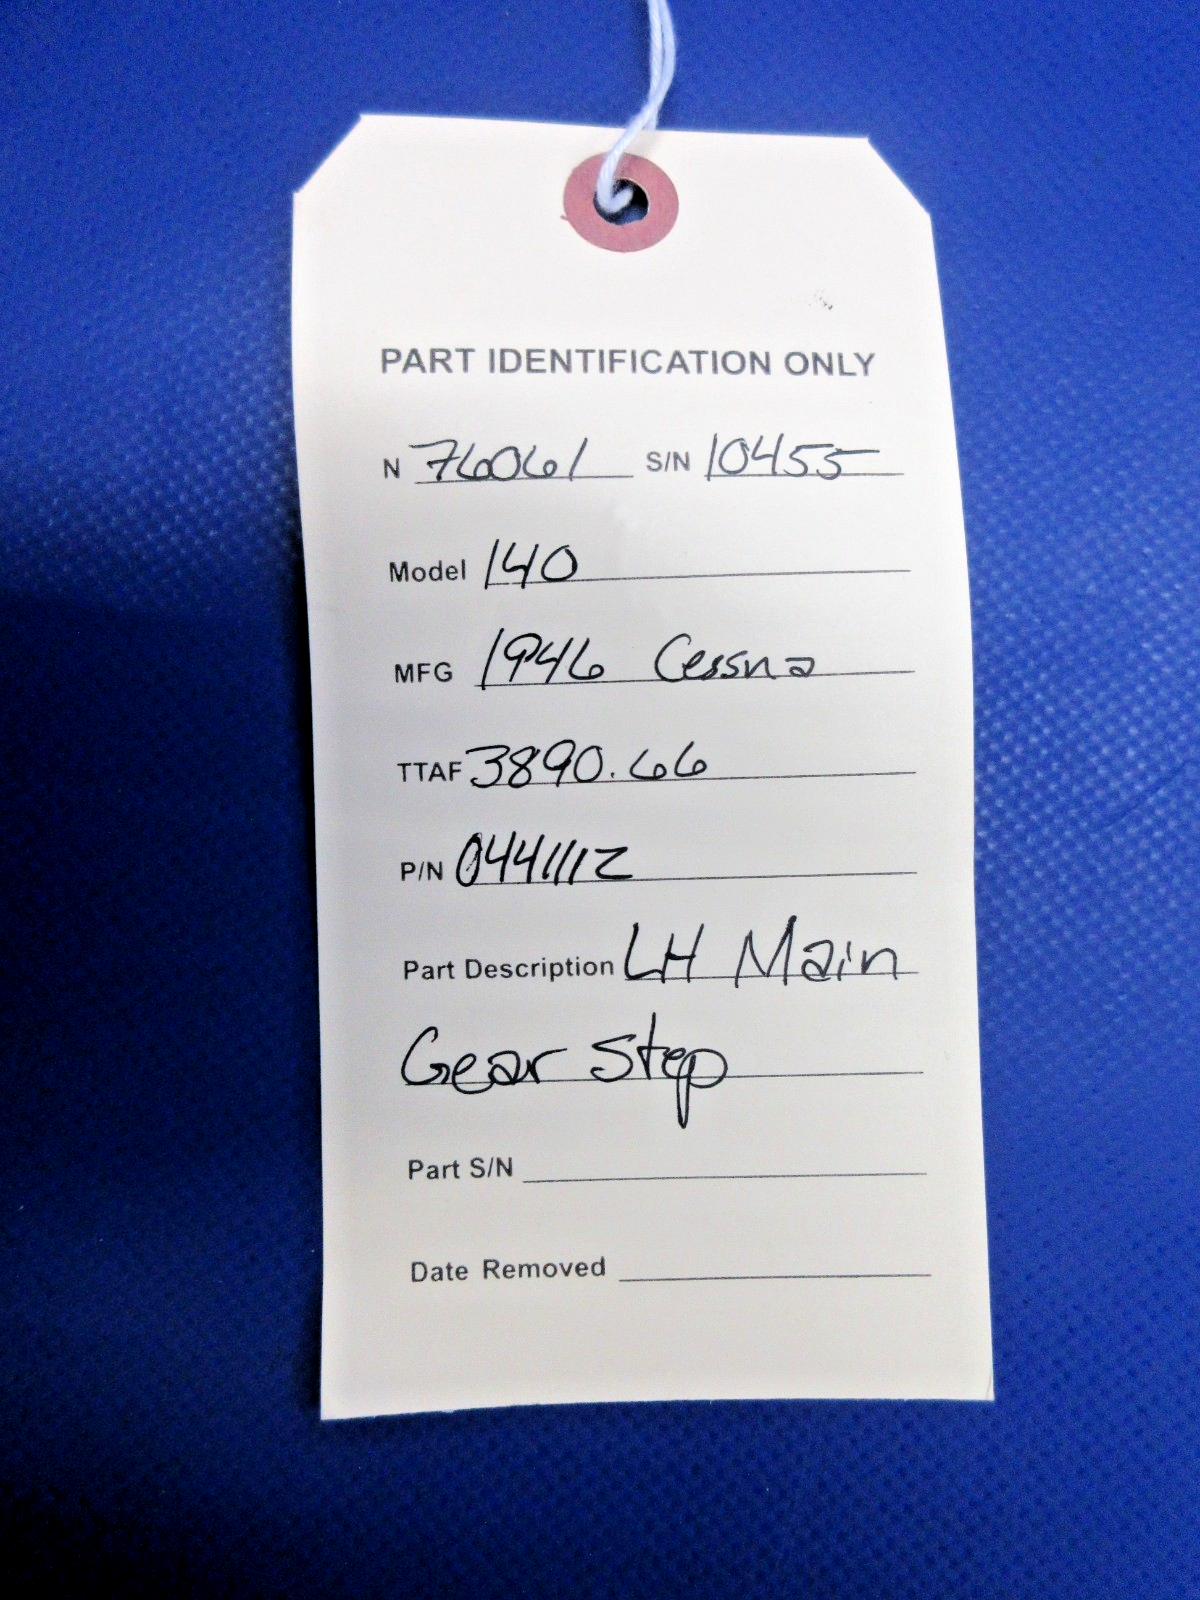 PART IDENTIFICATION ONLY
N 76061 S/N 10455
Model 140
MFG 1946 Cessna
TTAF 3890.66
P/N 0441112
Part Description LH Main
Gear Step
Part S/N
Date Removed